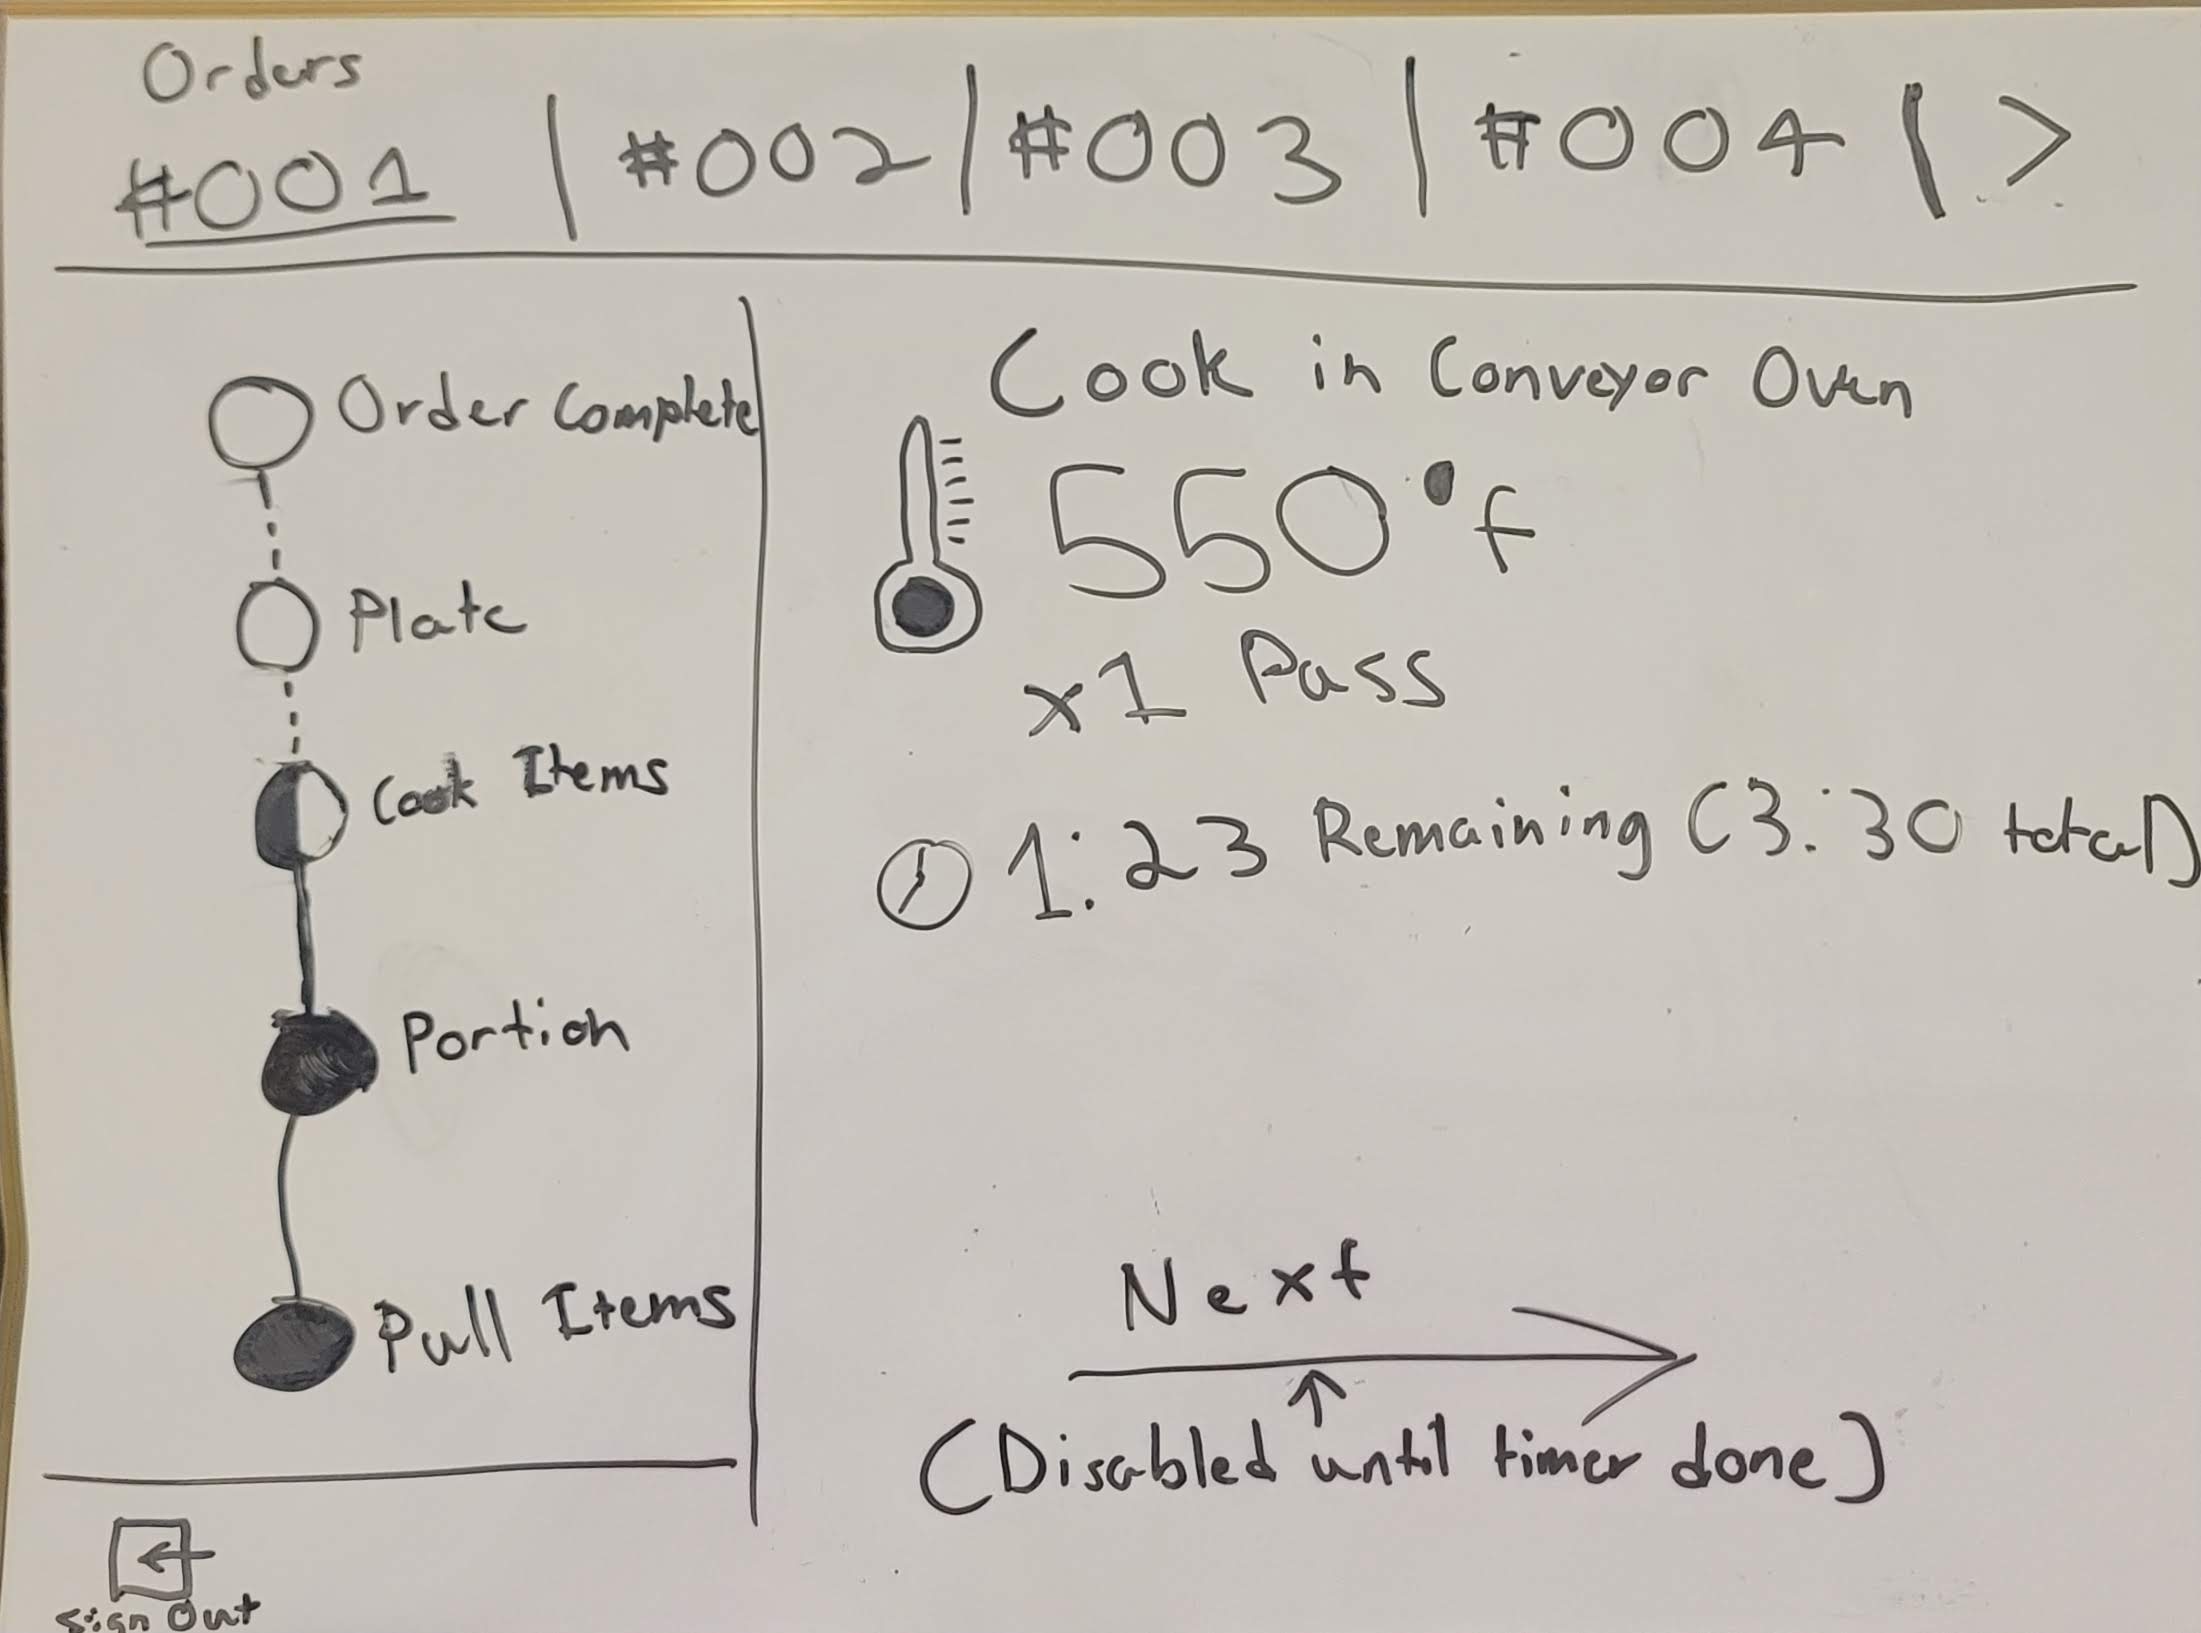 Orders
#001 | #002 | #003 | #004 | >
Order Complete
Plate
Cook Items
Portion
Pull Items
Sign Out
Cook in Conveyor Oven
550°f
x1 Pass
1:23 Remaining (3:30 total)
Next
(Disabled until timer done)